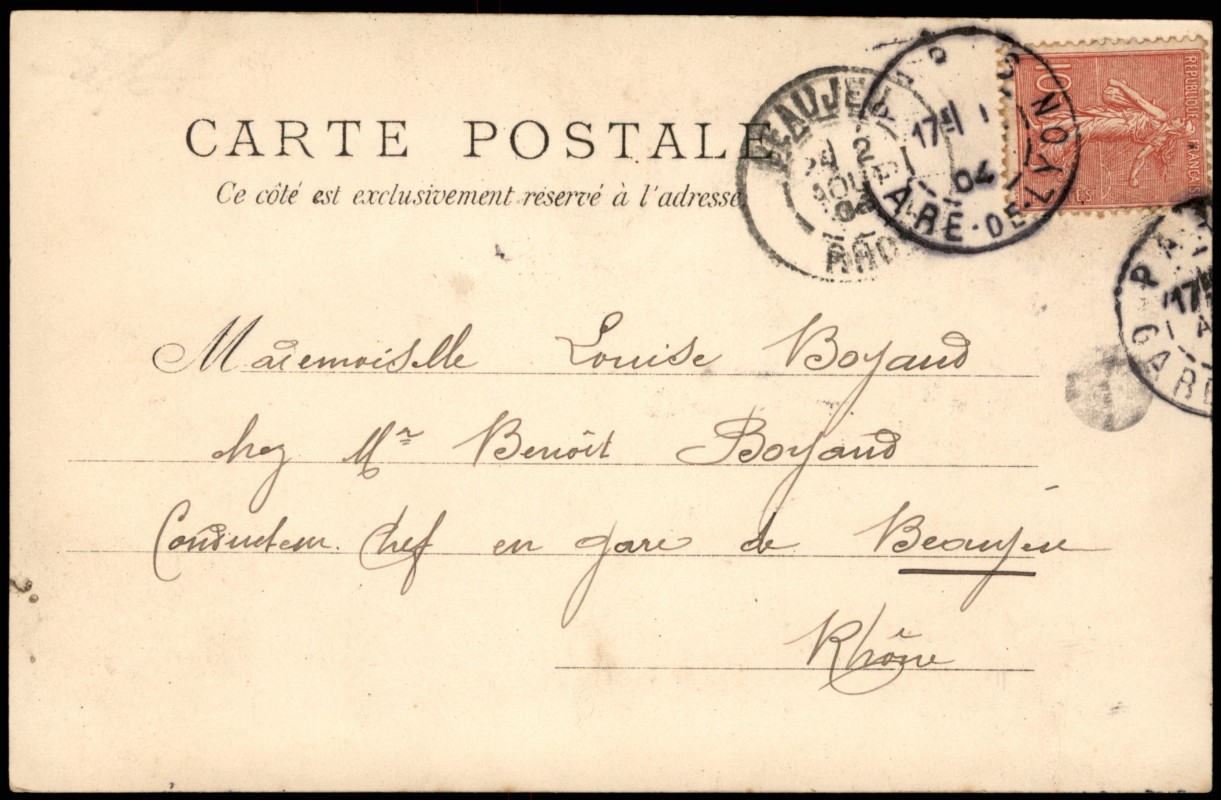 CARTE POSTALE
Ce côté est exclusivement réservé à l'adresse
BEAUJEU
2
AOUT
04
RHO
17
04
GARE-DE-LYON
10
REPUBLIQUE FRANCAISE
PA
17
GARE
Mademoiselle Louise Boyaud
chez Mr Benoît Boyaud
Conducteur Chef en gare de Beaujeu
Rhône